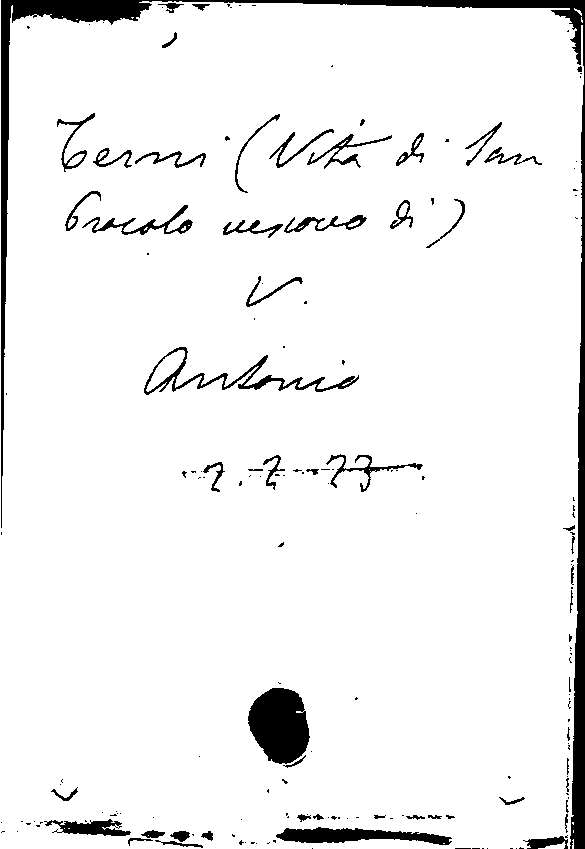 Terni (Vita di San
Procolo vescovo di)
V.
Antonio
2.2.23